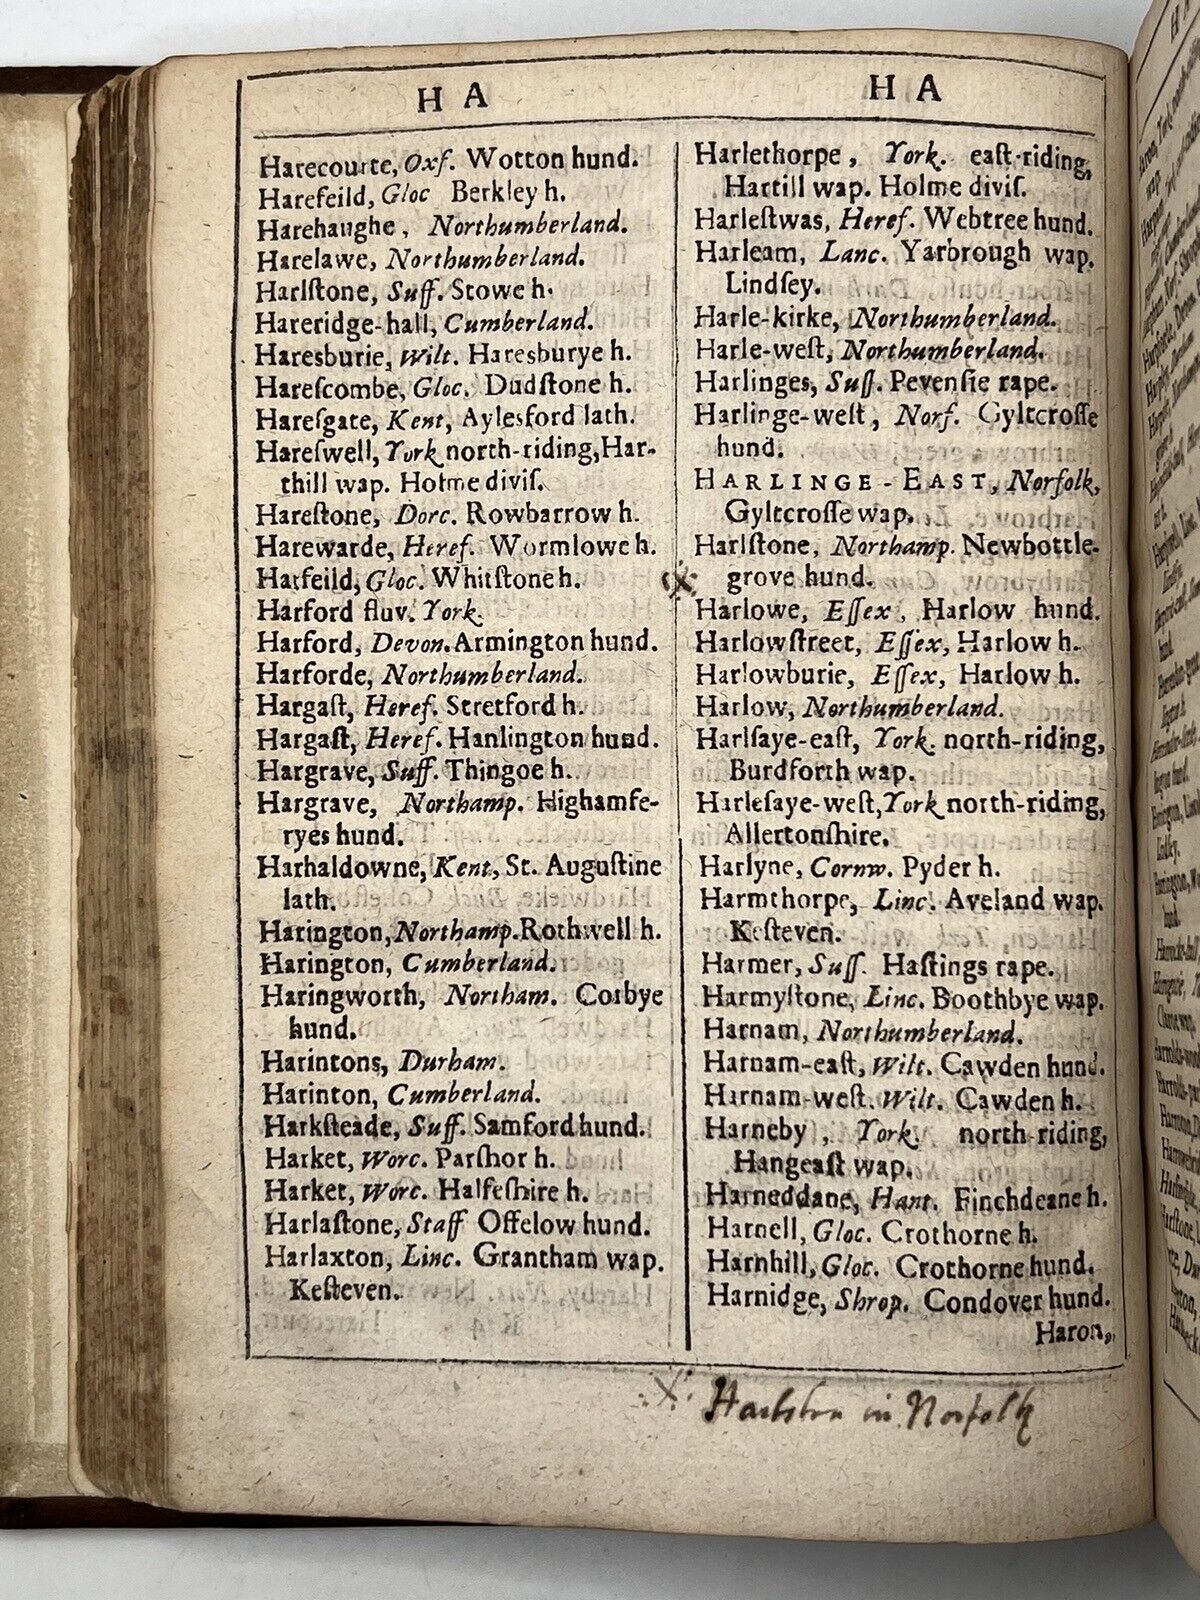 H A
Harecourte, Oxf. Wotton hund.
Harefeild, Gloc Berkley h.
Harehaughe, Northumberland.
Harelawe, Northumberland.
Harlſtone, Suff. Stowe h.
Hareridge-hall, Cumberland.
Haresburie, Wilt. Haresburye h.
Hareſcombe, Gloc. Dudſtone h.
Hareſgate, Kent, Aylesford lath.
Hareſwell, York north-riding, Har-
thill wap. Holme diviſ.
Hareſtone, Dorc. Rowbarrow h.
Harewarde, Heref. Wormlowe h.
Harfeild, Gloc. Whitſtone h.
Harford fluv. York.
Harford, Devon. Armington hund.
Harforde, Northumberland.
Hargaſt, Heref. Stretford h.
Hargaſt, Heref. Hanlington hund.
Hargrave, Suff. Thingoe h.
Hargrave, Northamp. Highamfe-
ryes hund.
Harhaldowne, Kent, St. Auguſtine
lath.
Harington, Northamp. Rothwell h.
Harington, Cumberland.
Haringworth, Northam. Corbye
hund.
Harintons, Durham.
Harinton, Cumberland.
Harkſteade, Suff. Samford hund.
Harket, Worc. Parſhor h.
Harket, Worc. Halfeſhire h.
Harlaſtone, Staff Offelow hund.
Harlaxton, Linc. Grantham wap.
Keſteven.
H A
Harlethorpe, York. eaſt-riding,
Hartill wap. Holme diviſ.
Harleſtwas, Heref. Webtree hund.
Harleam, Lanc. Yarbrough wap.
Lindſey.
Harle-kirke, Northumberland.
Harle-weſt, Northumberland.
Harlinges, Suſſ. Pevenſie rape.
Harlinge-weſt, Norf. Gyltcroſſe
hund.
HARLINGE-EAST, Norfolk,
Gyltcroſſe wap.
Harlſtone, Northamp. Newbottle-
grove hund.
Harlowe, Eſſex, Harlow hund.
Harlowſtreet, Eſſex, Harlow h.
Harlowburie, Eſſex, Harlow h.
Harlow, Northumberland.
Harlſaye-eaſt, York. north-riding,
Burdforth wap.
Harleſaye-weſt, York north-riding,
Allertonſhire.
Harlyne, Cornw. Pyder h.
Harmthorpe, Linc. Aveland wap.
Keſteven.
Harmer, Suſſ. Haſtings rape.
Harmyſtone, Linc. Boothbye wap.
Harnam, Northumberland.
Harnam-eaſt, Wilt. Cawden hund.
Harnam-weſt. Wilt. Cawden h.
Harneby, York. north-riding,
Hangeaſt wap.
Harneddane, Hant. Finchdeane h.
Harnell, Gloc. Crothorne h.
Harnhill, Gloc. Crothorne hund.
Harnidge, Shrop. Condover hund.
Haron,
in Norfolk